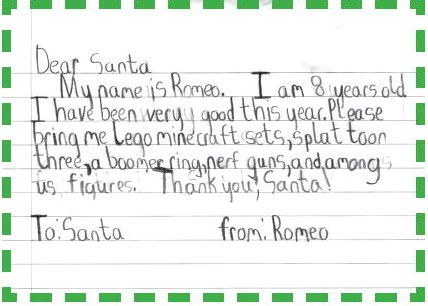 Dear Santa
My name is Romeo. I am 8 years old
I have been very good this year. Please
bring me Lego minecraft sets, splat toon
three, a boomer ring, nerf guns, and among
us figures. Thank you, Santa!
To: Santa from: Romeo